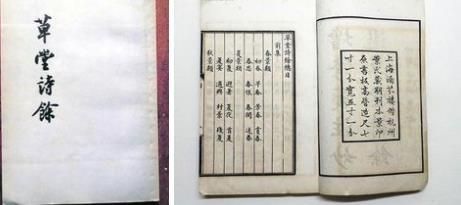 草堂詩餘
上海涵芬樓借杭州
葉氏藏明刊本景印
原書板高營造尺七
寸一分寬五寸一分
草堂詩餘總目
前集
春景類
初春 早春 芳春 賞春
春思 春恨 春閨 送春
夏景類
初夏 避暑 夏夜 首夏
夏宴 適興 村景 殘夏
秋景類